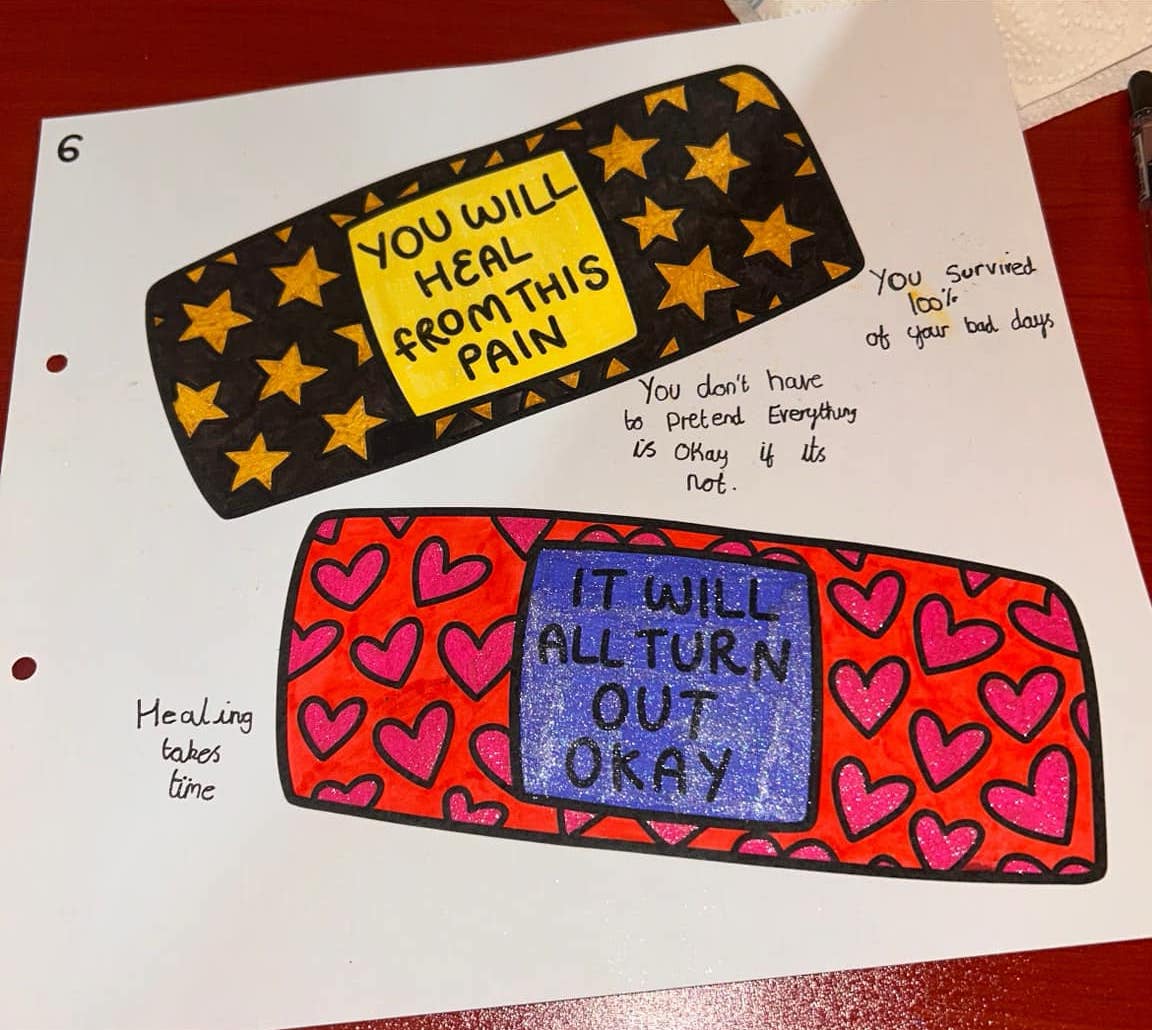 6
YOU WILL
HEAL
FROM THIS
PAIN
You Survived
100%
of your bad days
You don't have
to Pretend Everything
is Okay if its
not.
IT WILL
ALL TURN
OUT
OKAY
Healing
takes
time